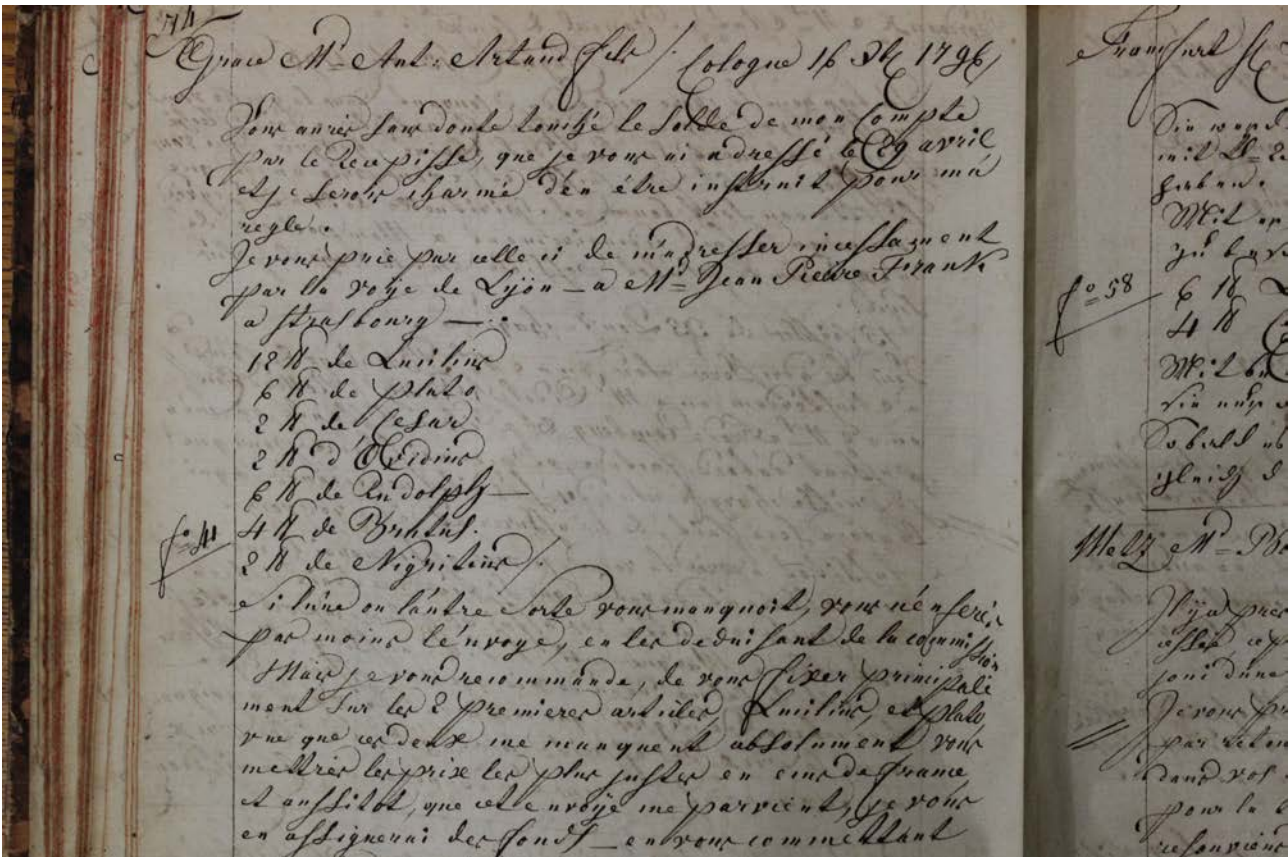 74
Grace Mr. Ant: Artaud fils /. Cologne 16 1796/
Vous auriés sans doute touché le Solde de mon Compte
par le Recepisse, que je vous ai adressé le 29 avril
et je serois charmé d'en être instruit pour ma
regle.
Je vous prie par celle ci de m'adresser incessament
par la voÿe de Lÿon — a Mr. Jean Pierre Frank
a Strasbourg —.
12 ℔ de Lucilius
6 ℔ de Pluto
2 ℔ de Cesar
2 ℔ d'Ovidius
6 ℔ de Rudolph —
fo 41
4 ℔ de Brutus.
2 ℔ de Nigritius /.
Si l'une ou l'autre Sorte vous manquoit, vous n'en ferés
pas moins l'envoye, en les deduisant de la commission
Mais je vous recommande, de vous fixer principale
ment Sur les 2 premieres articles, Lucilius, et Pluto,
vue que ces deux me manquent absolument vous
mettrés les prix les plus justes en de France
et aussitot, que cet envoÿe me parvient, je vous
en assignerai des fonds — en vous committant
Franfurt
Sie
mit
haben.
Mit
zu
fo 58
6 ℔
4 ℔
Mit
sie nur
Sobald
gleich
Metz Mr.
Il ÿ a
joui d'une
Je vous
par
dans vos
pour la